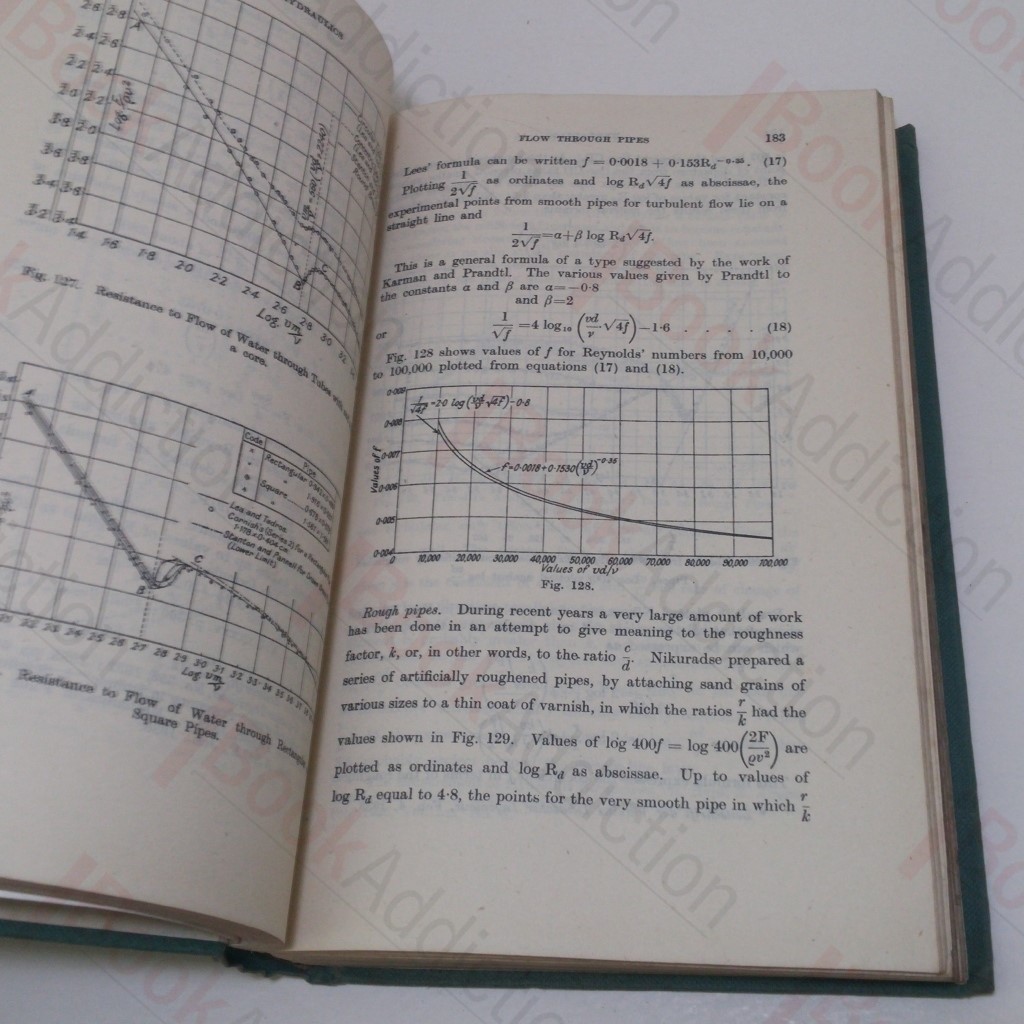 HYDRAULICS
Log F/ρv²
1·4 1·6 1·8 2·0 2·2 2·4 2·6 2·8 3·0 3·2
Log vm/ν
A
B
C
Fig. 127. Resistance to Flow of Water through Tubes with
a core.
Code
Pipe
Rectangular
Square
Lea and Tadros
Cornish's (Series 2) for a Rectangular
1·178 × 0·404 cm.
Stanton and Pannell for
(Lower Limit)
A
B
C
2·1 2·2 2·3 2·4 2·5 2·6 2·7 2·8 2·9 3·0 3·1 3·2 3·3 3·4 3·5 3·6 3·7
Log vm/ν
Resistance to Flow of Water through Rectangular
Square Pipes.
FLOW THROUGH PIPES 183
Lees' formula can be written f = 0·0018 + 0·153R_d^−0·35. (17)
Plotting 1/2√f as ordinates and log R_d√4f as abscissae, the
experimental points from smooth pipes for turbulent flow lie on a
straight line and
1/2√f = α+β log R_d√4f.
This is a general formula of a type suggested by the work of
Karman and Prandtl. The various values given by Prandtl to
the constants α and β are α=−0·8
and β=2
or 1/√f =4 log₁₀ (vd/ν · √4f) −1·6 . . . . (18)
Fig. 128 shows values of f for Reynolds' numbers from 10,000
to 100,000 plotted from equations (17) and (18).
0·009
1/√4f =2·0 log (vd/ν √4f) −0·8
0·008
0·007
f=0·0018+0·1530(vd/ν)^−0·35
Values of f
0·006
0·005
0·004
0 10,000 20,000 30,000 40,000 50,000 60,000 70,000 80,000 90,000 100,000
Values of vd/ν
Fig. 128.
Rough pipes. During recent years a very large amount of work
has been done in an attempt to give meaning to the roughness
factor, k, or, in other words, to the ratio c/d. Nikuradse prepared a
series of artificially roughened pipes, by attaching sand grains of
various sizes to a thin coat of varnish, in which the ratios r/k had the
values shown in Fig. 129. Values of log 400f = log 400(2F/ρv²) are
plotted as ordinates and log R_d as abscissae. Up to values of
log R_d equal to 4·8, the points for the very smooth pipe in which r/k
BookAddiction